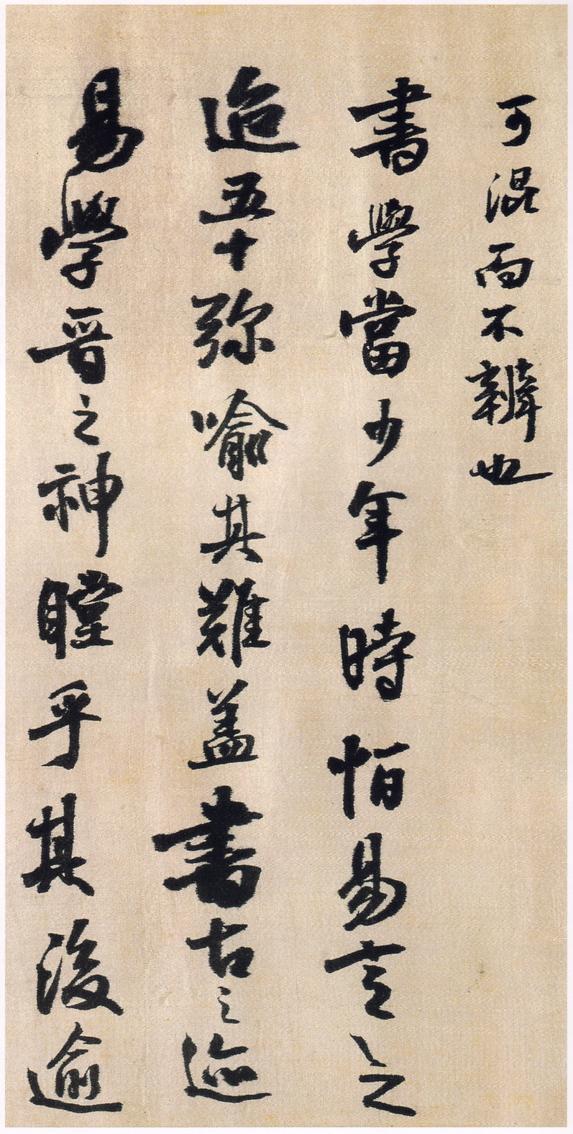 可混而不辨也
書學當少年時怕易言之
迨五十弥喻其難盖書古之迹
易學晋之神瞠乎其後逾